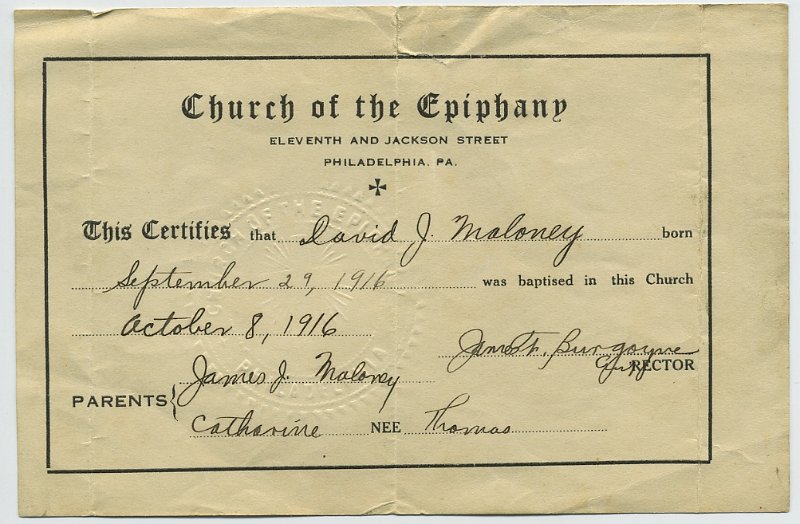 Church of the Epiphany
ELEVENTH AND JACKSON STREET
PHILADELPHIA, PA.
This Certifies that David J. Maloney born
September 29, 1916 was baptised in this Church
October 8, 1916
James F. Burgoyne
RECTOR
PARENTS { James J. Maloney
Catharine NEE Thomas